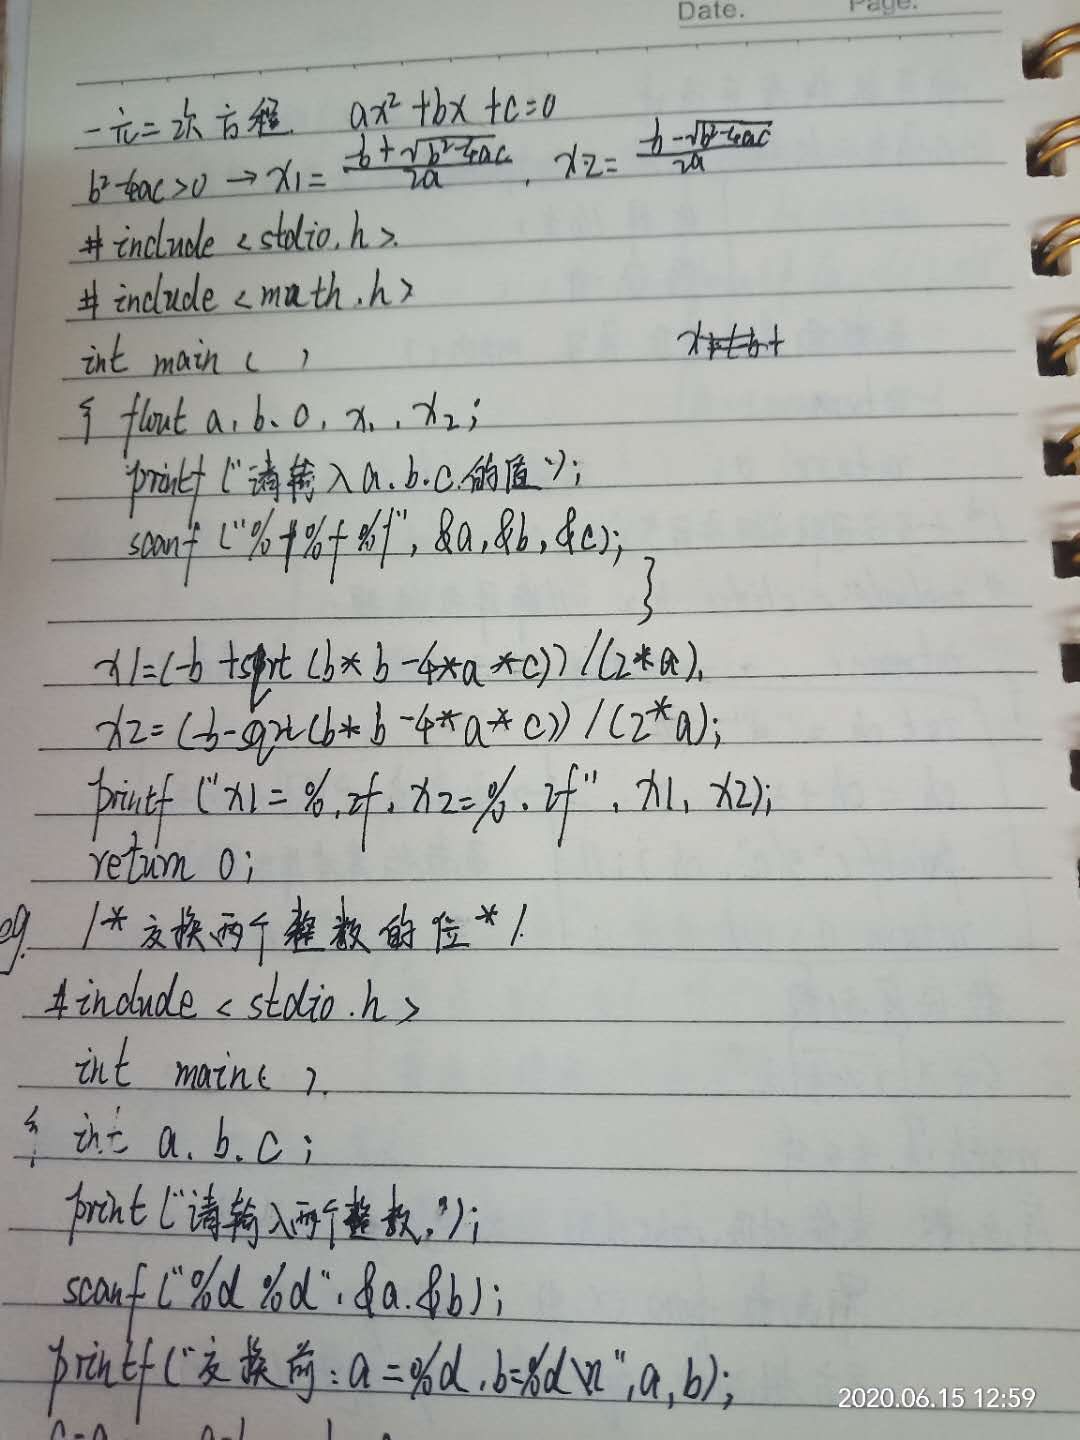 Date. Page.
一元二次方程. ax²+bx+c=0
b²-4ac>0 → x1= -b+√b²-4ac / 2a , x2= -b-√b²-4ac / 2a
#include <stdio.h>.
#include <math.h>
int main ( )
{ float a, b. 0, x1, x2;
printf ("请输入a.b.c.的值");
scanf ("%f%f%f", &a, &b, &c);
}
x1=(-b+sqrt (b*b-4*a*c)) / (2*a),
x2=(-b-sqrt (b*b-4*a*c)) / (2*a);
printf ("x1=%.2f, x2=%.2f", x1, x2);
return 0;
eg. /*交换两个整数的位*/.
#include <stdio.h>
int main( ).
{ int a. b. c;
print ("请输入两个整数,");
scanf ("%d %d", &a. &b);
printf ("交换前: a=%d, b=%d\n", a, b);
2020.06.15 12:59